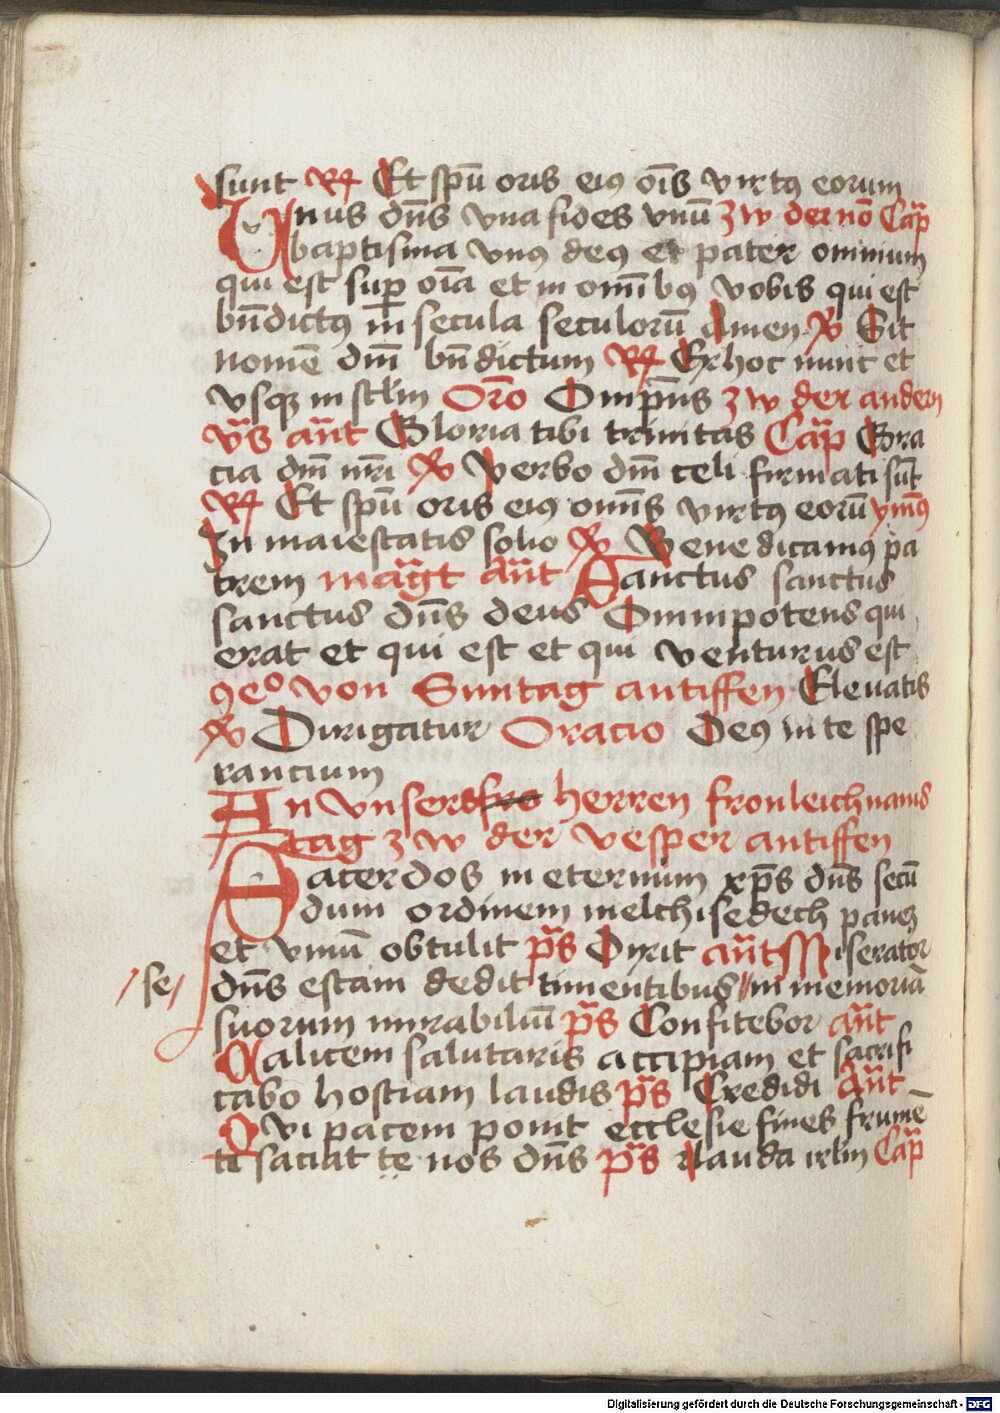 sunt R Et spū oris eiꝰ oīs virtꝰ eorum
Vnus dn̄s vna fides vnū zw der nō Cap̄
baptisma vnꝰ deꝰ et pater omnium
qui est sup̄ oīa et in om̄ibꝰ vobis qui est
bn̄dictꝰ in secula seculorū Amen V Sit
nomē dm̄ bn̄dictum R Ex hoc nunc et
vsqꝫ in sclm̄ Oro Omp̄ns zw der andern
vs ant Gloria tibi trinitas Cap Gra
cia dm̄ nr̄i V Verbo dm̄ celi firmati sūt
R Et spū oris eiꝰ omīs virtꝰ eorū ymꝰ
In maiestatis solio V Benedicamꝰ pa
trem magt ant Sanctus sanctus
sanctus dn̄s deus Omnipotens qui
erat et qui est et qui venturus est
9eo von Suntag antiffen Eleuatis
V Dirigatur Oracio Deꝰ in te spe
rancium
An vnsers fro herren fronleichnams
tag zw der vesper antiffen
Sacerdos in eternum xp̄s dn̄s secū
dum ordinem melchisedech panez
et vinū obtulit ps Dixit ant Miserator
/se/ dn̄s escam dedit timentibus / in memoriā
suorum mirabiliū ps Confitebor ant
Calicem salutaris accipiam et sacrifi
cabo hostiam laudis ps Credidi Ant
Qvi pacem ponit ecclesie fines frumē
ti saciat te nos dn̄s ps Lauda irlm̄ Cap
Digitalisierung gefördert durch die Deutsche Forschungsgemeinschaft - DFG